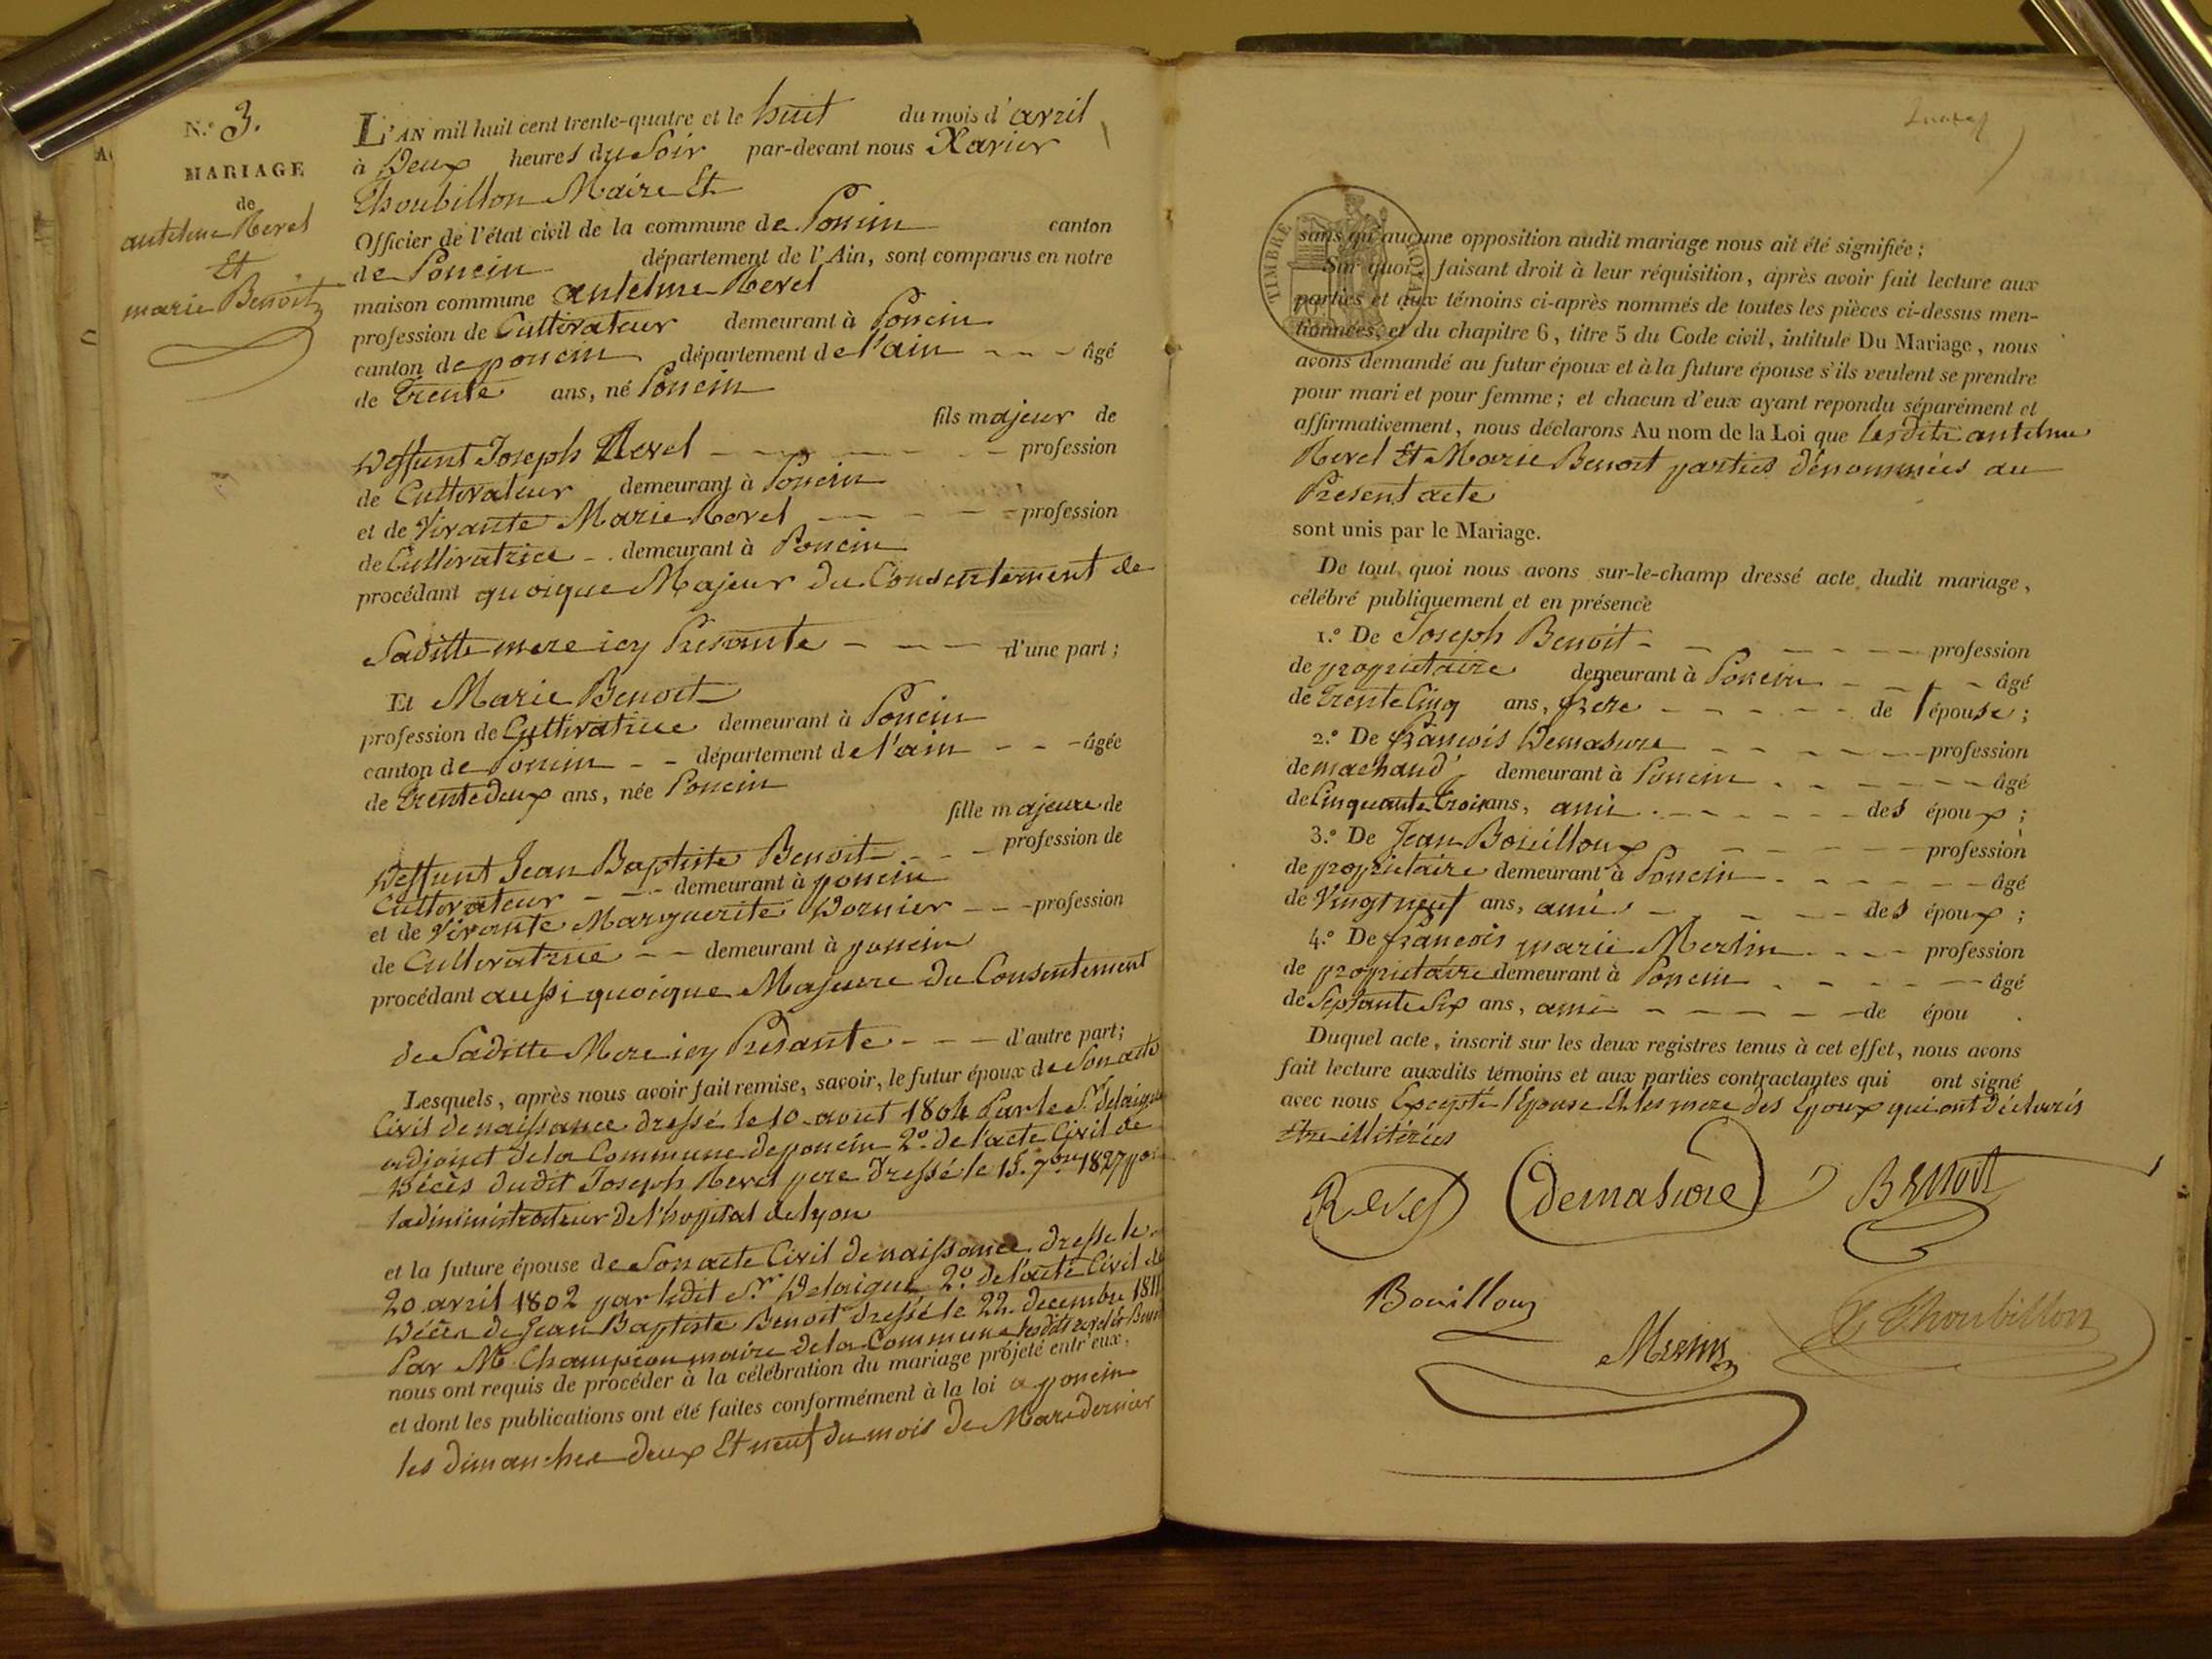 N.º 3.
MARIAGE
de
antelme Revel
Et
marie Benoit
L'AN mil huit cent trente-quatre et le huit du mois d'avril
à Deux heures du Soir par-devant nous Xavier
Thoubillon Maire Et
Officier de l'état civil de la commune de Poncin canton
de Poncin département de l'Ain, sont comparus en notre
maison commune antelme Revel
profession de Cultivateur demeurant à Poncin
canton de poncin département de l'ain âgé
de Trente ans, né Poncin
fils majeur de
Deffunt Joseph Revel profession
de Cultivateur demeurant à Poncin
et de Vivante Marie Revel profession
de Cultivatrice demeurant à Poncin
procédant quoique Majeur du Consentement de
Saditte mere icy Présante d'une part;
Et Marie Benoit
profession de Cultivatrice demeurant à Poncin
canton de Poncin département de l'ain âgée
de Trente deux ans, née Poncin
fille majeure de
Deffunt Jean Baptiste Benoit profession de
Cultivateur demeurant à poncin
et de Vivante Marguerite Dornier profession
de Cultivatrice demeurant à poncin
procédant aussi quoique Majeure du Consentement
de Saditte Mere icy Présante d'autre part;
Lesquels, après nous avoir fait remise, savoir, le futur époux de Son acte
Civil de naissance dressé le 10 aout 1804 Par le Sr Delaigue
adjoint de la Commune de poncin 2º. de l'acte Civil de
Décès dudit Joseph Revel pere dressé le 15. 7bre 1827 par
ladministrateur de l'hopital de lyon
et la future épouse de Son acte Civil de naissance dressé le
20 avril 1802 par ledit Sr Delaigue 2º. de l'acte Civil de
Décès de Jean Baptiste Benoit dressé le 22. decembre 1811
Par Mr Champion maire de la Commune lesdits revel et Benoit
nous ont requis de procéder à la célébration du mariage projeté entr'eux,
et dont les publications ont été faites conformément à la loi a poncin
les dimanches deux Et neuf du mois de Mars dernier
TIMBRE ROYAL
sans qu'aucune opposition audit mariage nous ait été signifiée;
Sur quoi, faisant droit à leur réquisition, après avoir fait lecture aux
parties et aux témoins ci-après nommés de toutes les pièces ci-dessus men-
tionnées, et du chapitre 6, titre 5 du Code civil, intitulé Du Mariage, nous
avons demandé au futur époux et à la future épouse s'ils veulent se prendre
pour mari et pour femme; et chacun d'eux ayant repondu séparément et
affirmativement, nous déclarons Au nom de la Loi que lesdits antelme
Revel Et Marie Benoit parties dénommées au
Présent acte
sont unis par le Mariage.
De tout quoi nous avons sur-le-champ dressé acte dudit mariage,
célébré publiquement et en présence
1.º De Joseph Benoit profession
de propriétaire demeurant à Poncin âgé
de Trente Cinq ans, frere de l'épouse;
2.º De françois Demasure profession
de machand demeurant à Poncin âgé
de Cinquante Trois ans, ami des époux;
3.º De Jean Bouilloux profession
de propriétaire demeurant à Poncin âgé
de Vingt neuf ans, ami des époux;
4.º De françois marie Merlin profession
de propriétaire demeurant à Poncin âgé
de Septante Six ans, ami de épou
Duquel acte, inscrit sur les deux registres tenus à cet effet, nous avons
fait lecture auxdits témoins et aux parties contractantes qui ont signé
avec nous Excepté l'Epouse Et les mere des Epoux qui ont déclarés
être illitérées
Revel demasure Benoit
Bouilloux
Merlin
X Thoubillon